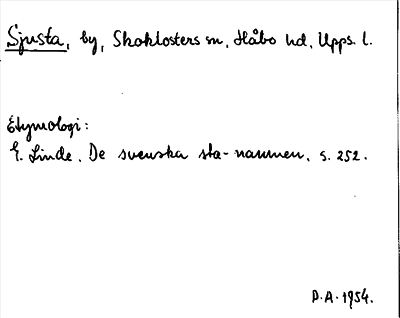 Sjusta, by, Skoklosters sn, Håbo hd, Upps. l.
Etymologi:
E. Linde, De svenska sta-namnen, s. 252.
D.A. 1954.